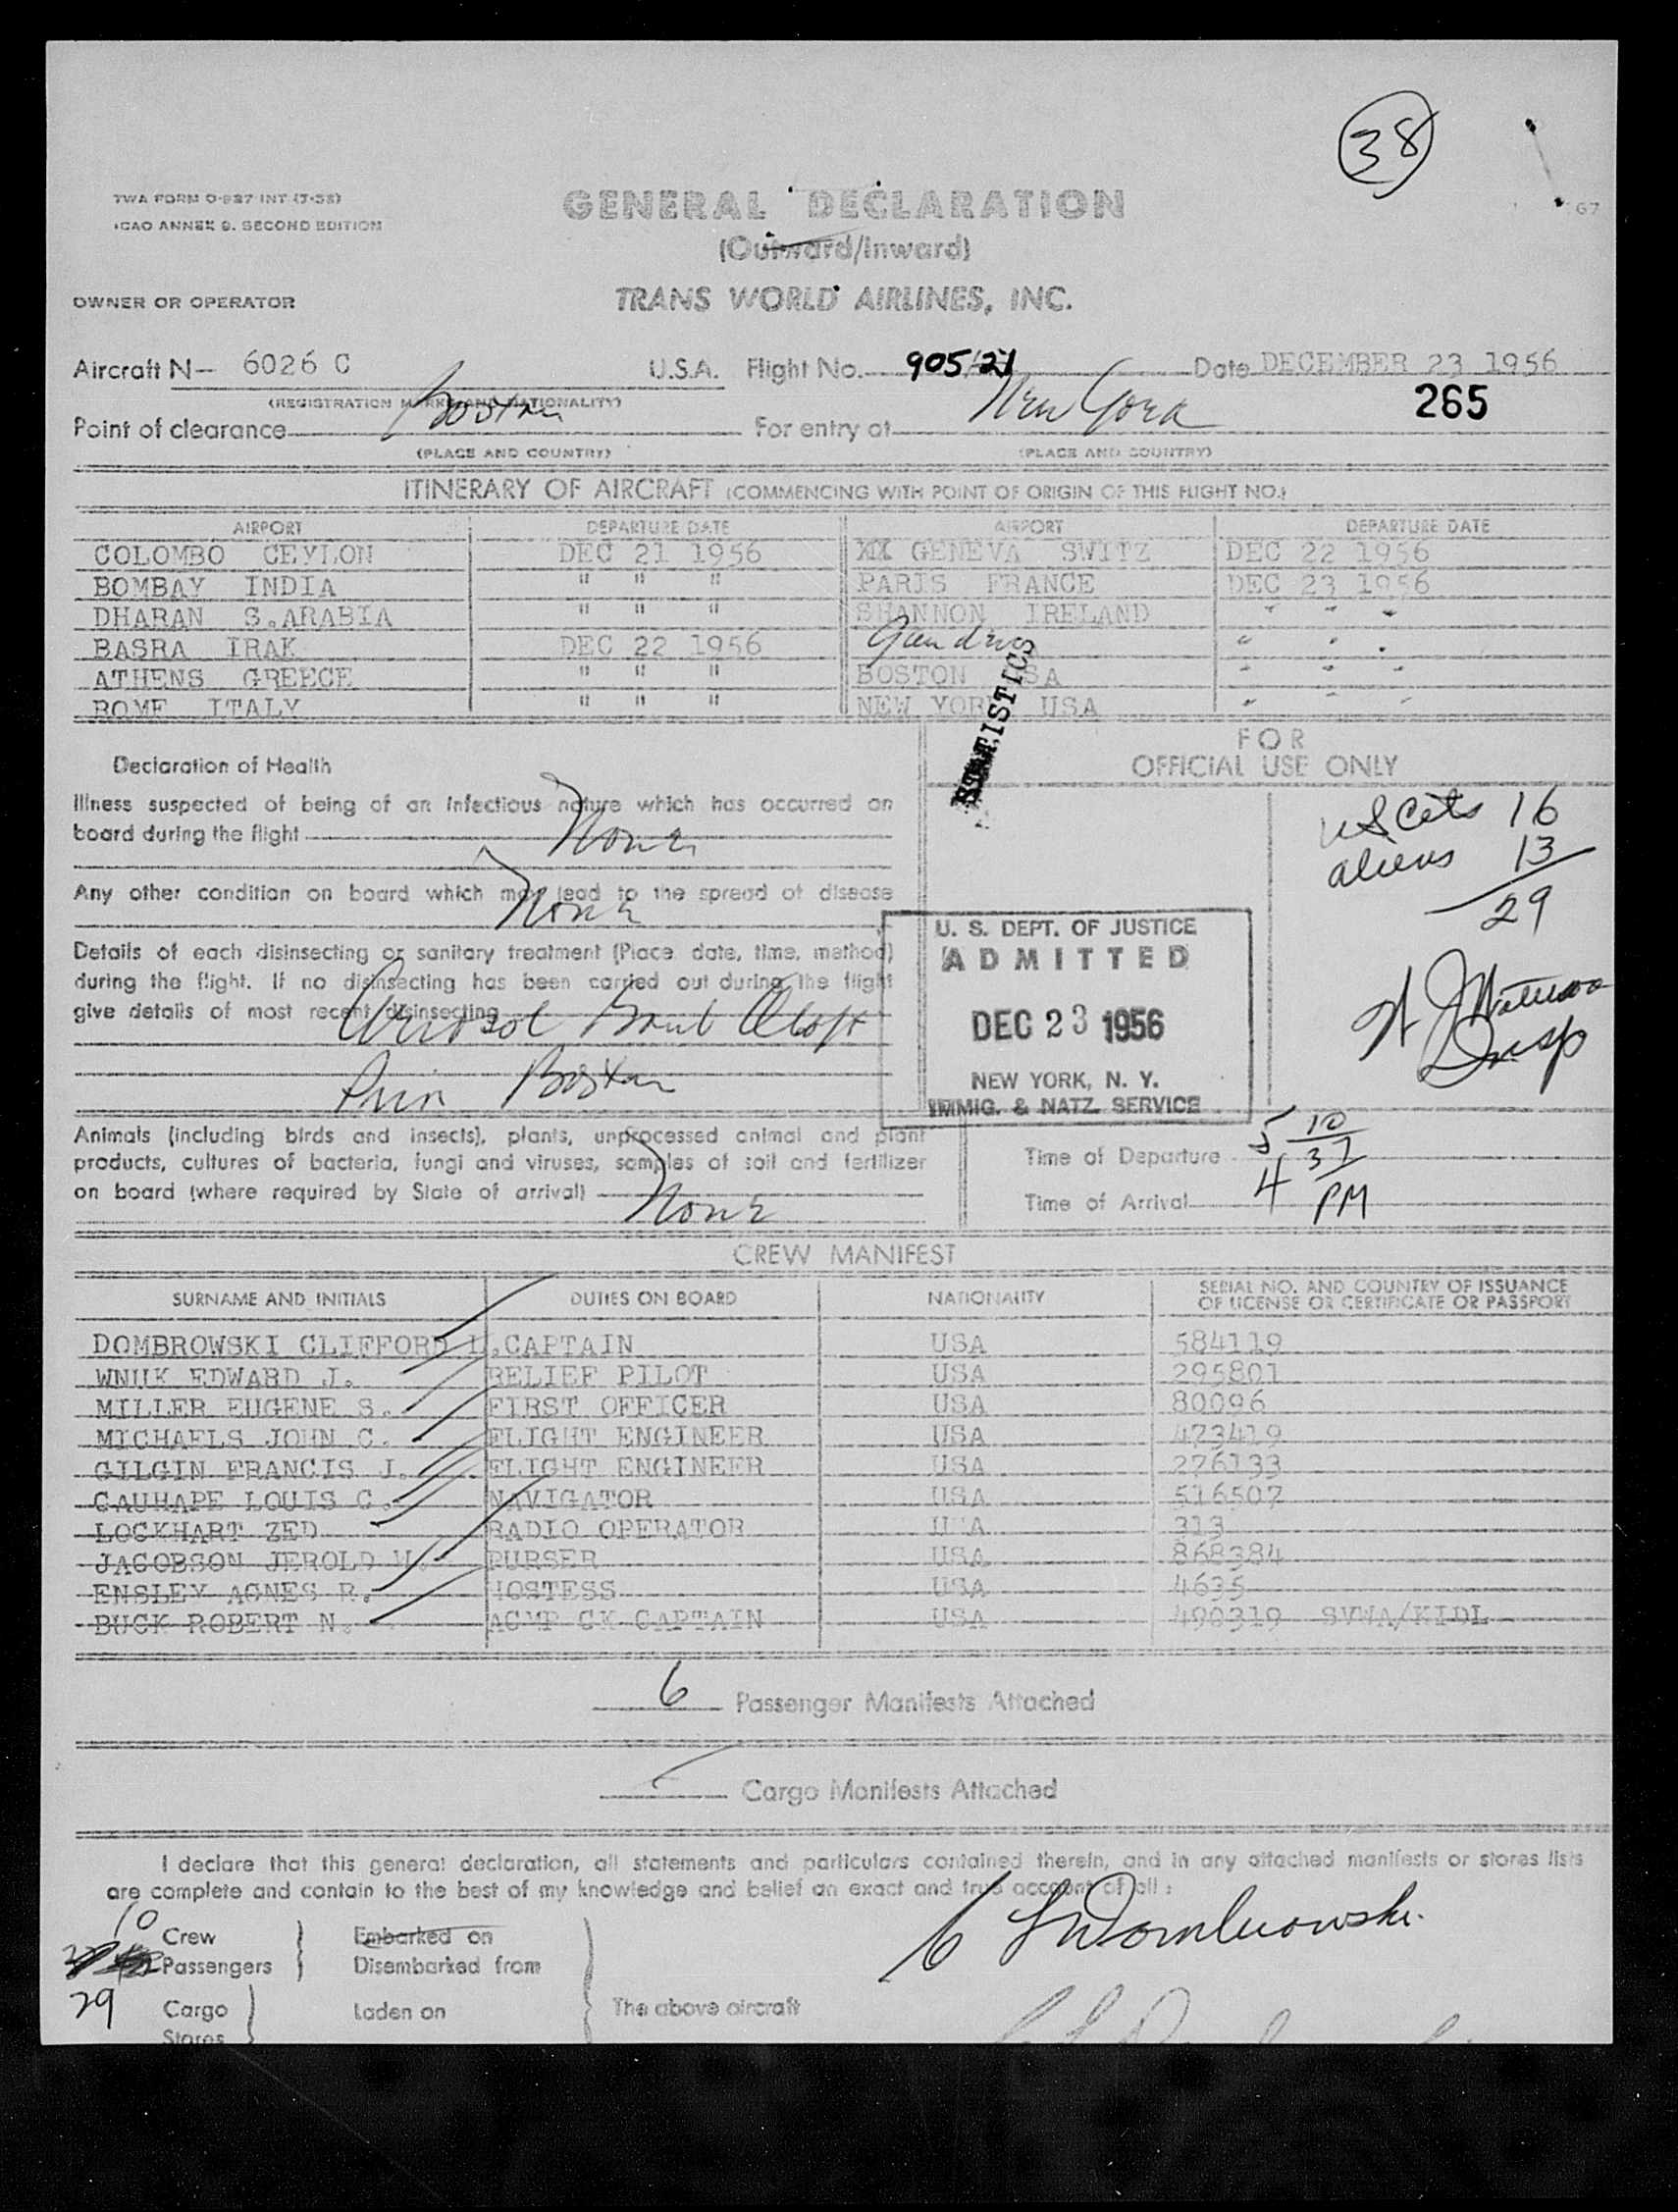 38
TWA FORM O-937 INT (7-53)
ICAO ANNEX 9. SECOND EDITION
GENERAL DECLARATION
(Outward/Inward)
67
OWNER OR OPERATOR
TRANS WORLD AIRLINES, INC.
Aircraft N— 6026 C U.S.A. Flight No. 905/21 Date DECEMBER 23 1956
(REGISTRATION MARKS AND NATIONALITY) 265
Point of clearance Boston For entry at New York
(PLACE AND COUNTRY) (PLACE AND COUNTRY)
ITINERARY OF AIRCRAFT (COMMENCING WITH POINT OF ORIGIN OF THIS FLIGHT NO.)
AIRPORT DEPARTURE DATE AIRPORT DEPARTURE DATE
COLOMBO CEYLON DEC 21 1956 XX GENEVA SWITZ DEC 22 1956
BOMBAY INDIA " " " PARIS FRANCE DEC 23 1956
DHARAN S.ARABIA " " " SHANNON IRELAND " " "
BASRA IRAK DEC 22 1956 Gander " " "
ATHENS GREECE " " " BOSTON USA " " "
ROME ITALY " " " NEW YORK USA " " "
Declaration of Health
Illness suspected of being of an infectious nature which has occurred on
board during the flight None
Any other condition on board which may lead to the spread of disease
None
Details of each disinsecting or sanitary treatment (Place, date, time, method)
during the flight. If no disinsecting has been carried out during the flight
give details of most recent disinsecting Aerosol Bomb Aloft
Prior Boston
STATISTICS
FOR
OFFICIAL USE ONLY
US Cits 16
aliens 13
29
Insp
U. S. DEPT. OF JUSTICE
ADMITTED
DEC 23 1956
NEW YORK, N. Y.
IMMIG. & NATZ. SERVICE
Animals (including birds and insects), plants, unprocessed animal and plant
products, cultures of bacteria, fungi and viruses, samples of soil and fertilizer
on board (where required by State of arrival) None
Time of Departure 5 10
Time of Arrival 4 37 PM
CREW MANIFEST
SURNAME AND INITIALS DUTIES ON BOARD NATIONALITY SERIAL NO. AND COUNTRY OF ISSUANCE
OF LICENSE OR CERTIFICATE OR PASSPORT
DOMBROWSKI CLIFFORD L. CAPTAIN USA 584119
WNUK EDWARD J. RELIEF PILOT USA 295801
MILLER EUGENE S. FIRST OFFICER USA 80096
MICHAELS JOHN C. FLIGHT ENGINEER USA 473419
GILGIN FRANCIS J. FLIGHT ENGINEER USA 276133
CAUHAPE LOUIS C. NAVIGATOR USA 516507
LOCKHART ZED RADIO OPERATOR USA 313
JACOBSON JEROLD W. PURSER USA 868384
ENSLEY AGNES R. HOSTESS USA 4635
BUCK ROBERT N. ACMP CK CAPTAIN USA 490319 SVWA/KIDL
6 Passenger Manifests Attached
Cargo Manifests Attached
I declare that this general declaration, all statements and particulars contained therein, and in any attached manifests or stores lists
are complete and contain to the best of my knowledge and belief an exact and true account of all :
10 Crew Embarked on
Passengers Disembarked from
29 Cargo Laden on The above aircraft
Stores
C L Dombrowski